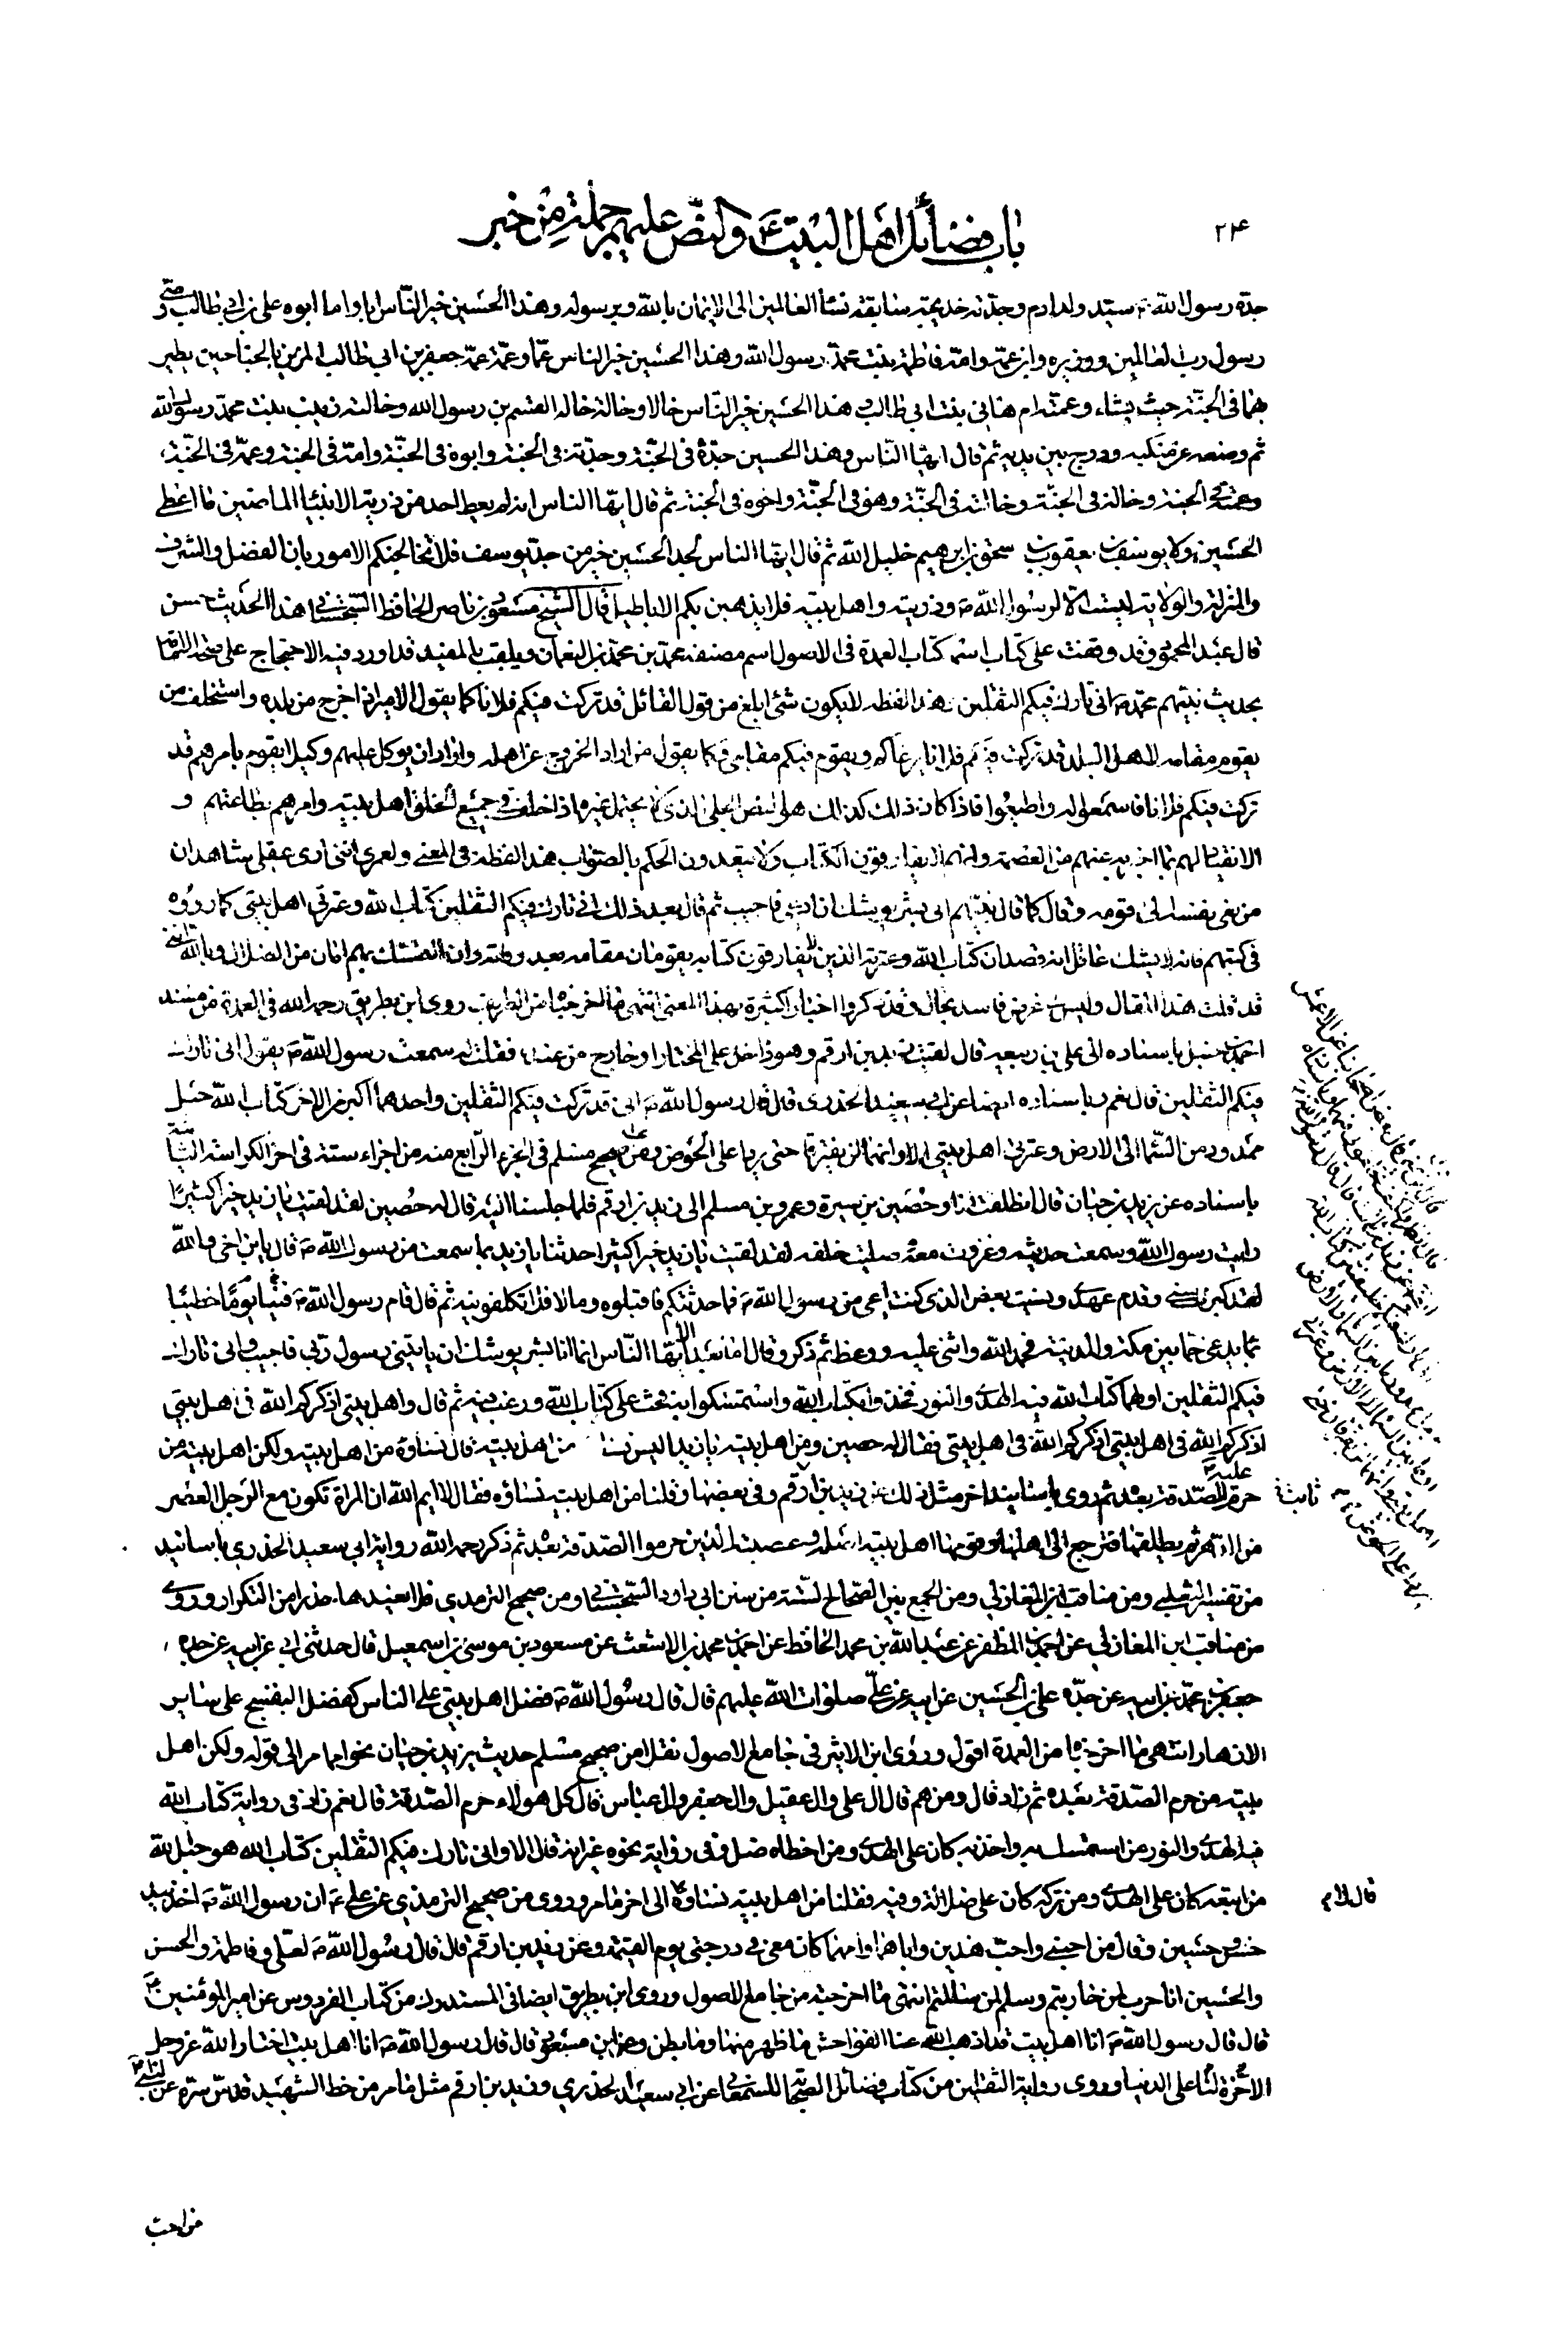 ٢٤
باب فضائل اهل البيت ع والنص عليهم جملة من خبر
جده رسول الله ص سيد ولد ادم وجدته خديجة سابقة نساء العالمين الى الايمان بالله وبرسوله وهذا الحسين خير الناس ابا واما ابوه على بن ابى طالب وصى
رسول رب العالمين ووزيره وابن عمه وامه فاطمة بنت محمد رسول الله وهذا الحسين خير الناس عما وعمة عمه جعفر بن ابى طالب المزين بالجناحين يطير
بهما فى الجنة حيث يشاء وعمته ام هانى بنت ابى طالب وهذا الحسين خير الناس خالا وخالة خاله القسم بن رسول الله وخالته زينب بنت محمد رسول الله
ثم وضعه عن منكبه ودرج بين يديه ثم قال ايها الناس وهذا الحسين جده فى الجنة وجدته فى الجنة وابوه فى الجنة وامه فى الجنة وعمه فى الجنة
وعمته فى الجنة وخاله فى الجنة وخالته فى الجنة وهو فى الجنة واخوه فى الجنة ثم قال ايها الناس انه لم يعط احد من ذرية الانبياء الماضين ما اعطى
الحسين ولا يوسف بن يعقوب بن اسحق بن ابرهيم خليل الله ثم قال ايها الناس لجد الحسين خير من جد يوسف فلا تخالجنكم الامور بان الفضل والشرف
والمنزلة والولاية ليست الا لرسول الله ص وذريته واهل بيته فلا يذهبن بكم الاباطيل قال الشيخ مسعود بن ناصر الحافظ السجستانى هذا الحديث حسن
قال عبد المحمود وقد وقفت على كتاب اسمه كتاب العمدة فى الاصول اسم مصنفه محمد بن محمد بن النعمان ويلقب بالمفيد قد اورد فيه الاحتجاج على صحة الامامة
بحديث نبيهم محمد ص انى تارك فيكم الثقلين هذا لفظه لا يكون شئ ابلغ من قول القائل قد تركت فيكم فلانا كما يقول الامير اذا خرج من بلده واستخلف من
يقوم مقامه لاهل البلد قد تركت فيكم فلانا يرعاكم ويقوم فيكم مقامى وكما يقول من اراد الخروج عن اهله واراد ان يوكل عليهم وكيلا يقوم بامرهم قد
تركت فيكم فلانا فاسمعوا له واطيعوا فاذا كان ذلك كذلك فهو النص الجلى الذى لا يحتمل غيره اذ خلف فى جميع الخلق اهل بيته وامرهم بطاعتهم و
الانقياد لهم بما اخبر به عنهم من العصمة وانهم لا يفارقون الكتاب ولا يتعدون الحكم بالصواب هذا لفظه فى المعنى ولعمرى اننى ارى عقلى شاهدا ان
من نعى نفسه الى قومه وقال كما قال نبيهم انى بشر يوشك ان ادعى فاجيب ثم قال بعد ذلك انى تارك فيكم الثقلين كتاب الله وعترتى اهل بيتى كما رووه
فى كتبهم فانه لا يشك عاقل انه قصد ان كتاب الله وعترته الذين لا يفارقون كتابه يقومان مقامه بعد وفاته وان التمسك بهم امان من الضلال وبالله اننى
قد قلت هذا المقال وليس لى غرض فاسد بحال وقد ذكروا اخبارا كثيرة بهذا المعنى انتهى ما اخرجناه من الطرايف روى ابن بطريق رحمه الله فى العمدة من مسند
احمد بن حنبل باسناده الى على بن ربيعة قال لقيت زيد بن ارقم وهو داخل على المختار او خارج من عنده فقلت له سمعت رسول الله ص يقول انى تارك
فيكم الثقلين قال نعم وباسناده ايضا عن ابى سعيد الخدرى قال قال رسول الله ص انى قد تركت فيكم الثقلين واحدهما اكبر من الاخر كتاب الله حبل
ممدود من السماء الى الارض وعترتى اهل بيتى الا وانهما لن يفترقا حتى يردا على الحوض ومن صحيح مسلم فى الجزء الرابع منه من اجزاء ستة فى اخر الكراسة الثانية
باسناده عن يزيد بن حيان قال انطلقت انا وحصين بن سبرة وعمرو بن مسلم الى زيد بن ارقم فلما جلسنا اليه قال له حصين لقد لقيت يا زيد خيرا كثيرا
رايت رسول الله وسمعت حديثه وغزوت معه وصليت خلفه لقد لقيت يا زيد خيرا كثيرا حدثنا يا زيد بما سمعت من رسول الله ص قال يابن اخى والله
لقد كبر سنى وقدم عهدى ونسيت بعض الذى كنت اعى من رسول الله ص فما حدثتكم فاقبلوه وما لا فلا تكلفونيه ثم قال قام رسول الله ص فينا يوما خطيبا
بماء يدعى خما بين مكة والمدينة فحمد الله واثنى عليه ووعظ ثم ذكر وقال اما بعد الا ايها الناس انما انا بشر يوشك ان ياتينى رسول ربى فاجيب وانى تارك
فيكم الثقلين اولهما كتاب الله فيه الهدى والنور فخذوا بكتاب الله واستمسكوا به فحث على كتاب الله ورغب فيه ثم قال واهل بيتى اذكركم الله فى اهل بيتى
اذكركم الله فى اهل بيتى اذكركم الله فى اهل بيتى فقال له حصين ومن اهل بيته يا زيد اليس نساؤه من اهل بيته قال نساؤه من اهل بيته ولكن اهل بيته من
حرم عليه الصدقة بعده ثم روى باسانيد اخر مثل ذلك عن زيد بن ارقم وفى بعضها وقلنا من اهل بيته نساؤه فقال لا ايم الله ان المراة تكون مع الرجل العصر
من الدهر ثم يطلقها فترجع الى اهلها وقومها اهل بيته اصله وعصبته الذين حرموا الصدقة بعده ثم ذكر رحمه الله رواية ابى سعيد الخدرى باسانيد
من تفسير الثعلبى ومن مناقب ابن المغازلى ومن الجمع بين الصحاح الستة من سنن ابى داود السجستانى ومن صحيح الترمذى فلا نعيدها حذرا من التكرار وروى
من مناقب ابن المغازلى عن احمد بن المظفر عن عبد الله بن محمد الحافظ عن احمد بن محمد بن الاشعث عن مسعود بن موسى بن اسمعيل قال حدثنى ابى عن ابيه عن جده
جعفر بن محمد عن ابيه عن جده على بن الحسين عن ابيه عن على صلوات الله عليهم قال قال رسول الله ص فضل اهل بيتى على الناس كفضل البنفسج على ساير
الازهار انتهى ما اخرجناه من العمدة اقول وروى ابن الاثير فى جامع الاصول نقلا من صحيح مسلم حديث يزيد بن حيان نحوا مما مر الى قوله ولكن اهل
بيته من حرم الصدقة بعده ثم زاد قال ومن هم قال ال على وال عقيل وال جعفر وال عباس قال كل هولاء حرم الصدقة قال نعم زاد فى رواية كتاب الله
فيه الهدى والنور من استمسك به واخذ به كان على الهدى ومن اخطاه ضل وفى رواية نحوه غير انه قال الا وانى تارك فيكم الثقلين كتاب الله هو حبل الله
من اتبعه كان على الهدى ومن تركه كان على ضلالة وفيه فقلنا من اهل بيته نساؤه قال لا الى اخر ما مر وروى من صحيح الترمذى عن على ع ان رسول الله ص اخذ بيد
حسن وحسين وقال من احبنى واحب هذين واباهما وامهما كان معى فى درجتى يوم القيمة وعن زيد بن ارقم قال قال رسول الله ص لعلى وفاطمة والحسن
والحسين انا حرب لمن حاربتم وسلم لمن سالمتم انتهى ما اخرجته من جامع الاصول وروى ابن بطريق ايضا فى المستدرك من كتاب الفردوس عن امير المؤمنين ع
قال قال رسول الله ص انا اهل بيت قد اذهب الله عنا الفواحش ما ظهر منها وما بطن وعن ابن مسعود قال قال رسول الله ص انا اهل بيت اختار الله عز وجل
لنا الاخرة على الدنيا وروى رواية الثقلين من كتاب فضائل الصحابة للسمعانى عن ابى سعيد الخدرى وزيد بن ارقم مثل ما مر من خط الشهيد قدس سره عن النبى ص
من احب